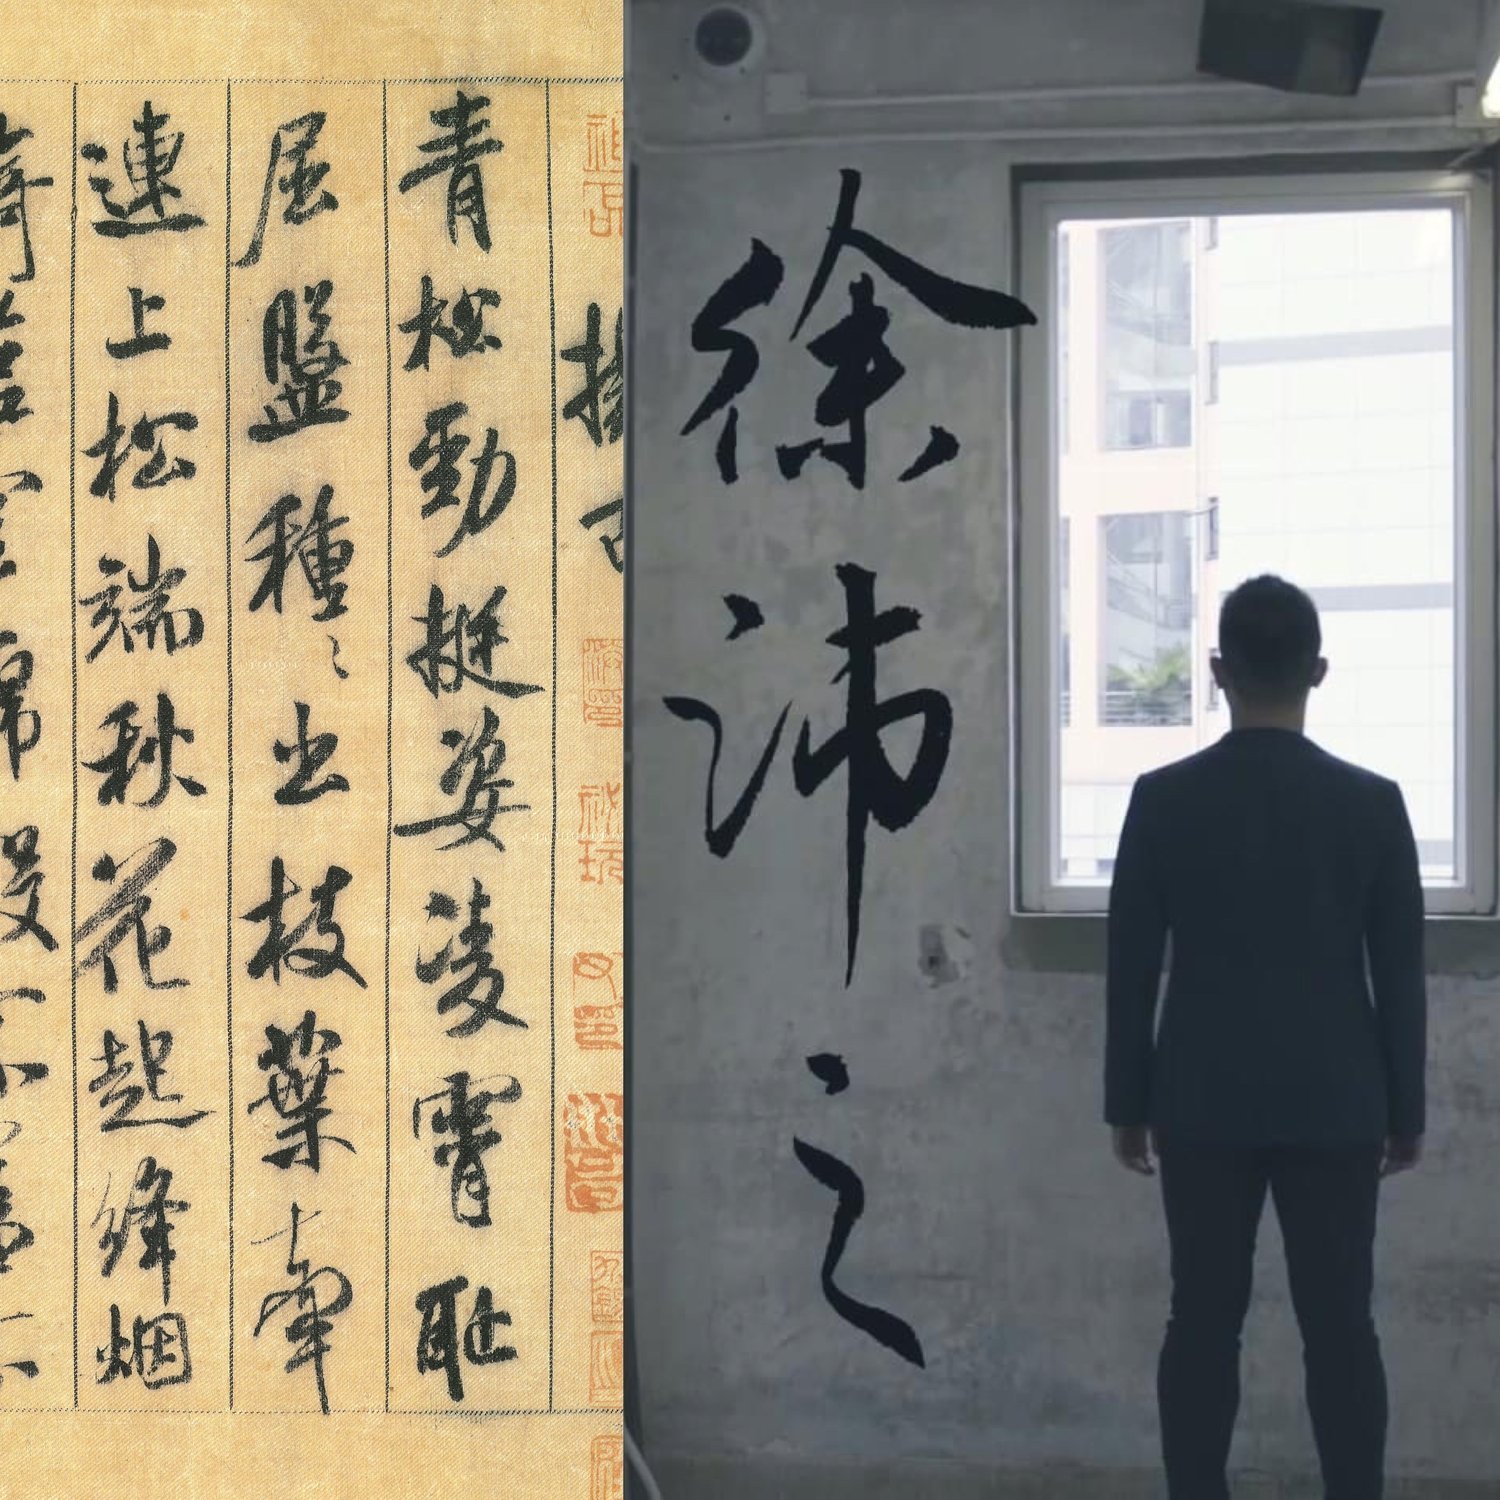 青松勁挺姿凌霄耻
屈盤種〻出枝葉牽
連上松端秋花起絳烟
徐沛之